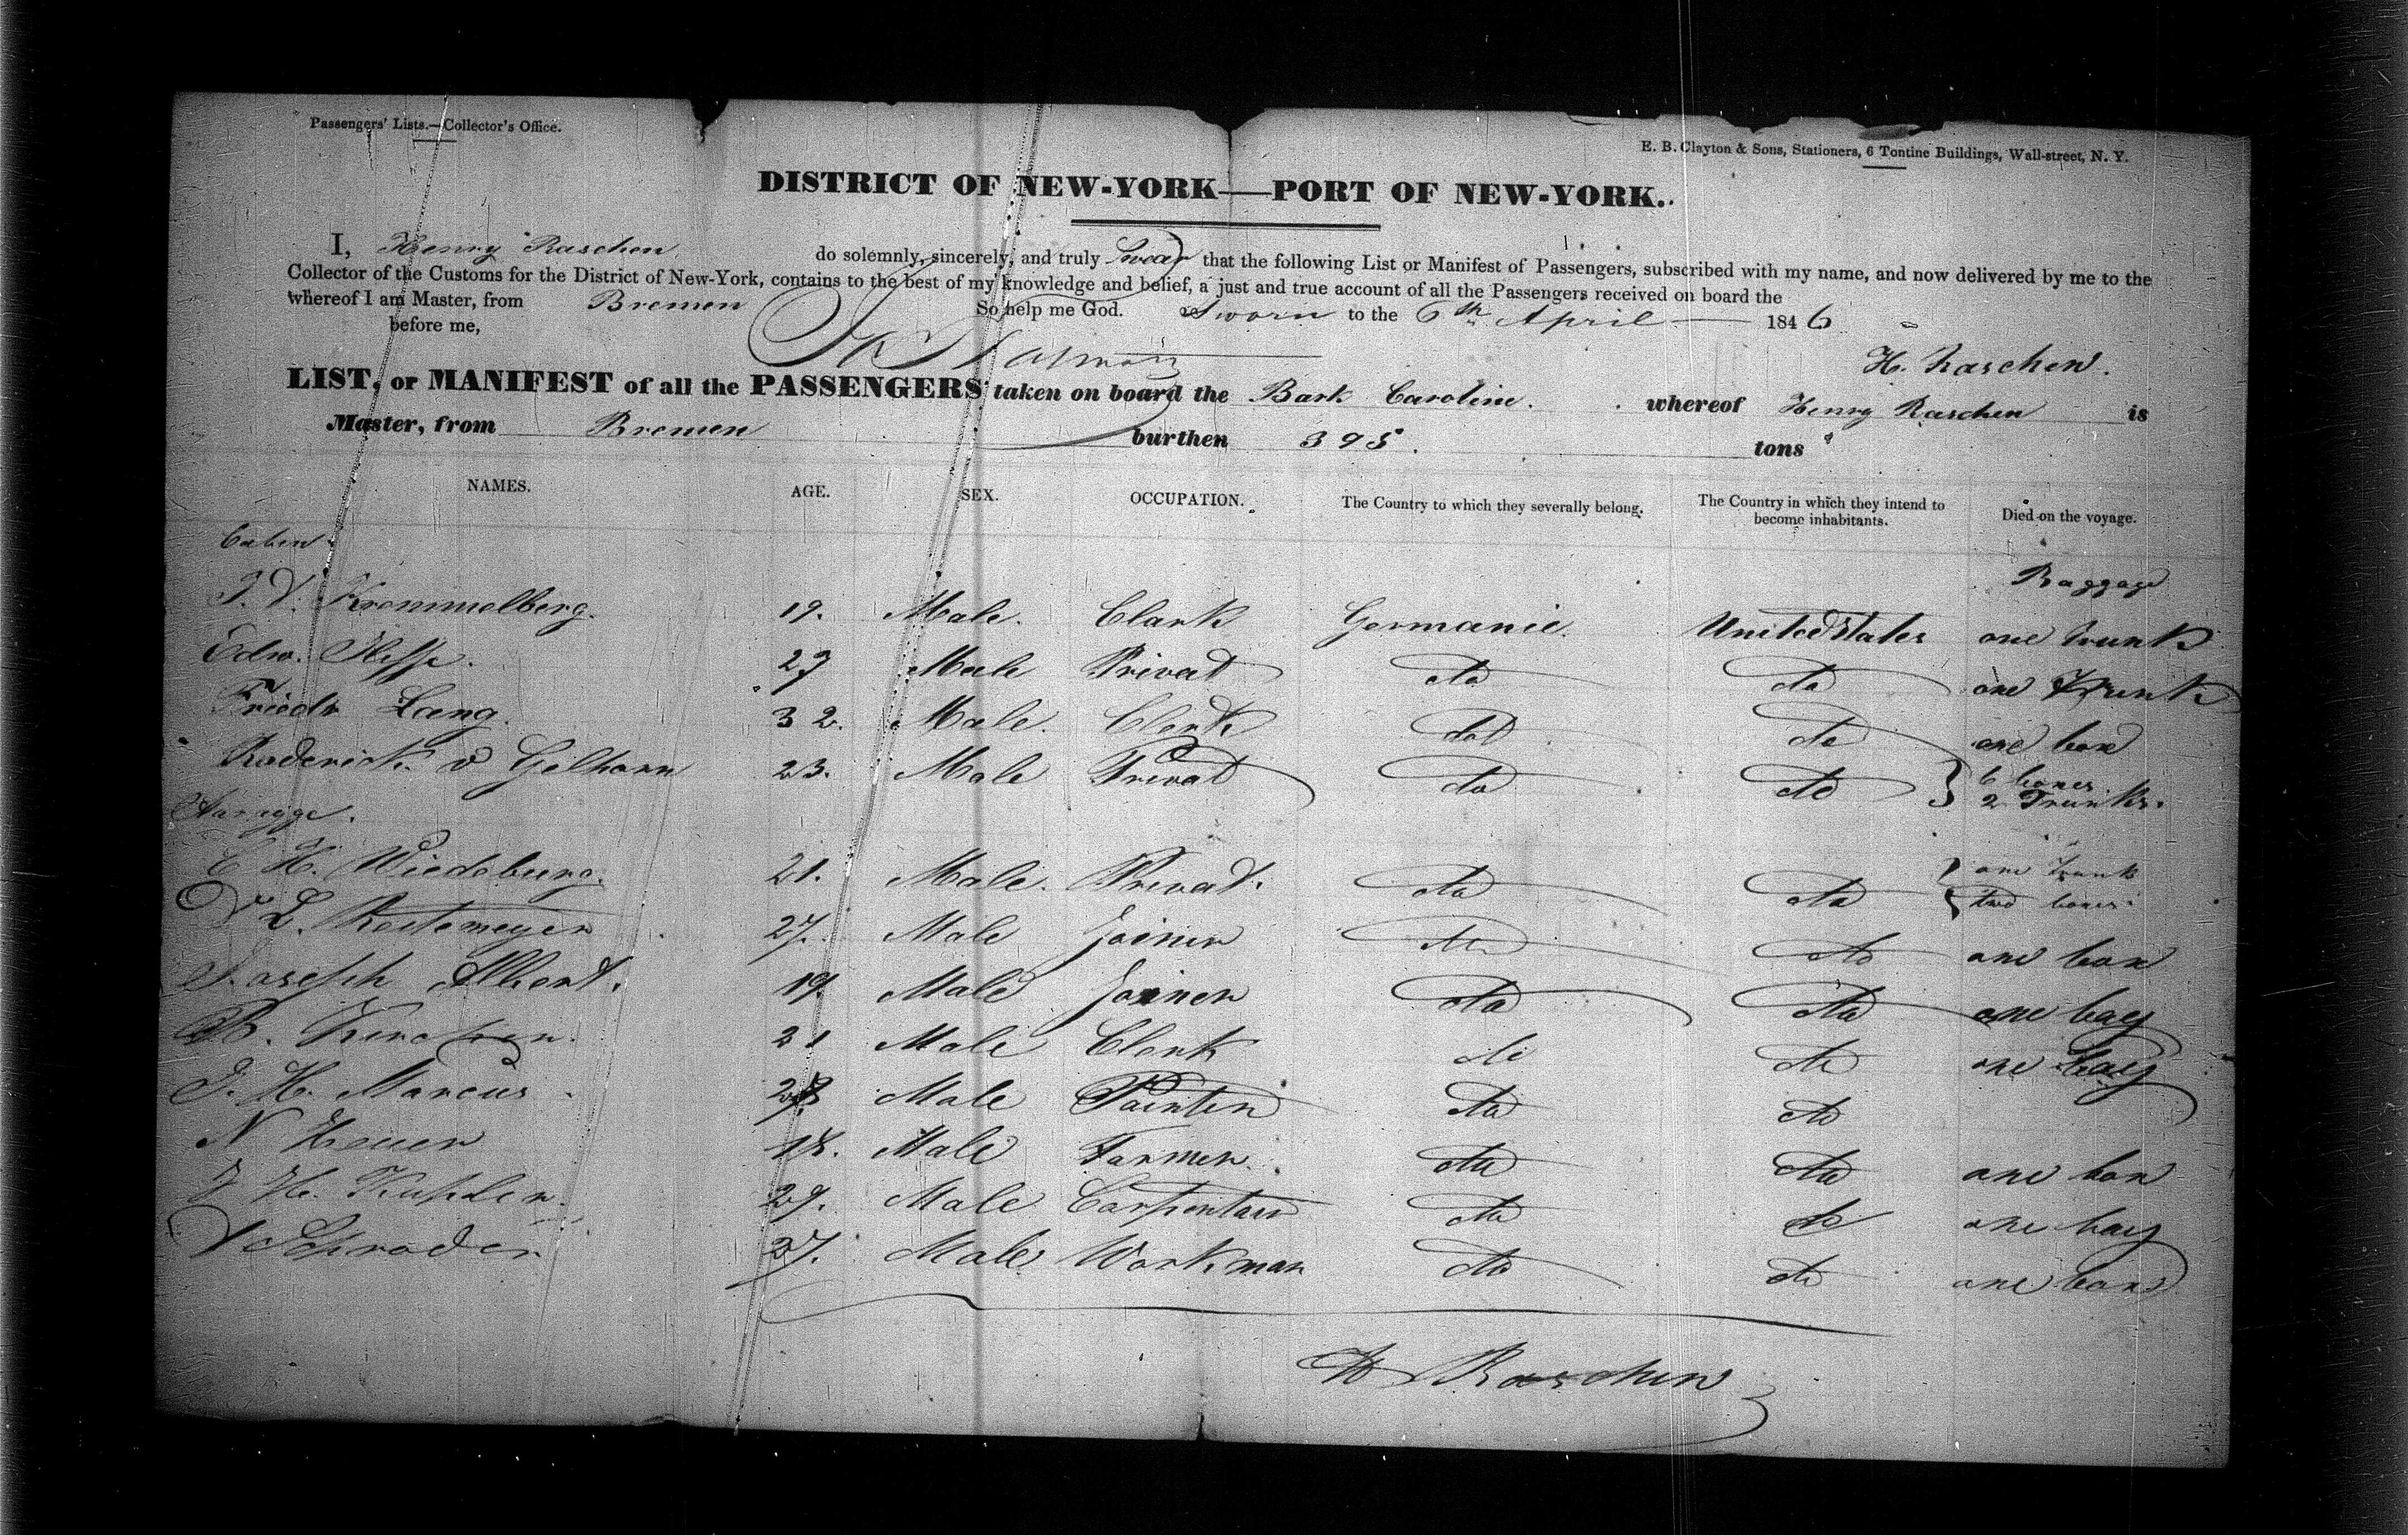 Passengers' Lists.—Collector's Office.
E. B. Clayton & Sons, Stationers, 6 Tontine Buildings, Wall-street, N. Y.
DISTRICT OF NEW-YORK—PORT OF NEW-YORK.
I, Henry Raschen do solemnly, sincerely, and truly Swear that the following List or Manifest of Passengers, subscribed with my name, and now delivered by me to the
Collector of the Customs for the District of New-York, contains to the best of my knowledge and belief, a just and true account of all the Passengers received on board the
whereof I am Master, from Bremen So help me God. Sworn to the 6th April 1846
before me,
H. Raschen.
LIST, or MANIFEST of all the PASSENGERS taken on board the Bark Caroline. whereof Henry Raschen is
Master, from Bremen burthen 395. tons
NAMES. AGE. SEX. OCCUPATION. The Country to which they severally belong. The Country in which they intend to become inhabitants. Died on the voyage.
Cabin
Baggage
Krommelberg. 19. Male. Clark Germanie. United States one trunk
Edw. Hesse. 27 Male Privat do do one Trunk
Friedr Lang. 32. Male. Clerk do do one box
Roderich v Gelhorn 23. Male Privat do do } 6 boxes
2 Trunks.
H. Wiedeburg. 21. Male. Privat. do do } one trunk
two boxes
L. Rostemeyer 27. Male Joiner do do one box
Joseph Albert. 19 Male Joiner do do one bag
B. 21 Male Clerk do do one bag
J. H. Marcus 28 Male Painter do do
N Heuer 18. Male Farmer. do do one box
H. Kuhler. 29. Male Carpenter do do one bag
Schroder 27. Male Workman do do one box
H Raschen